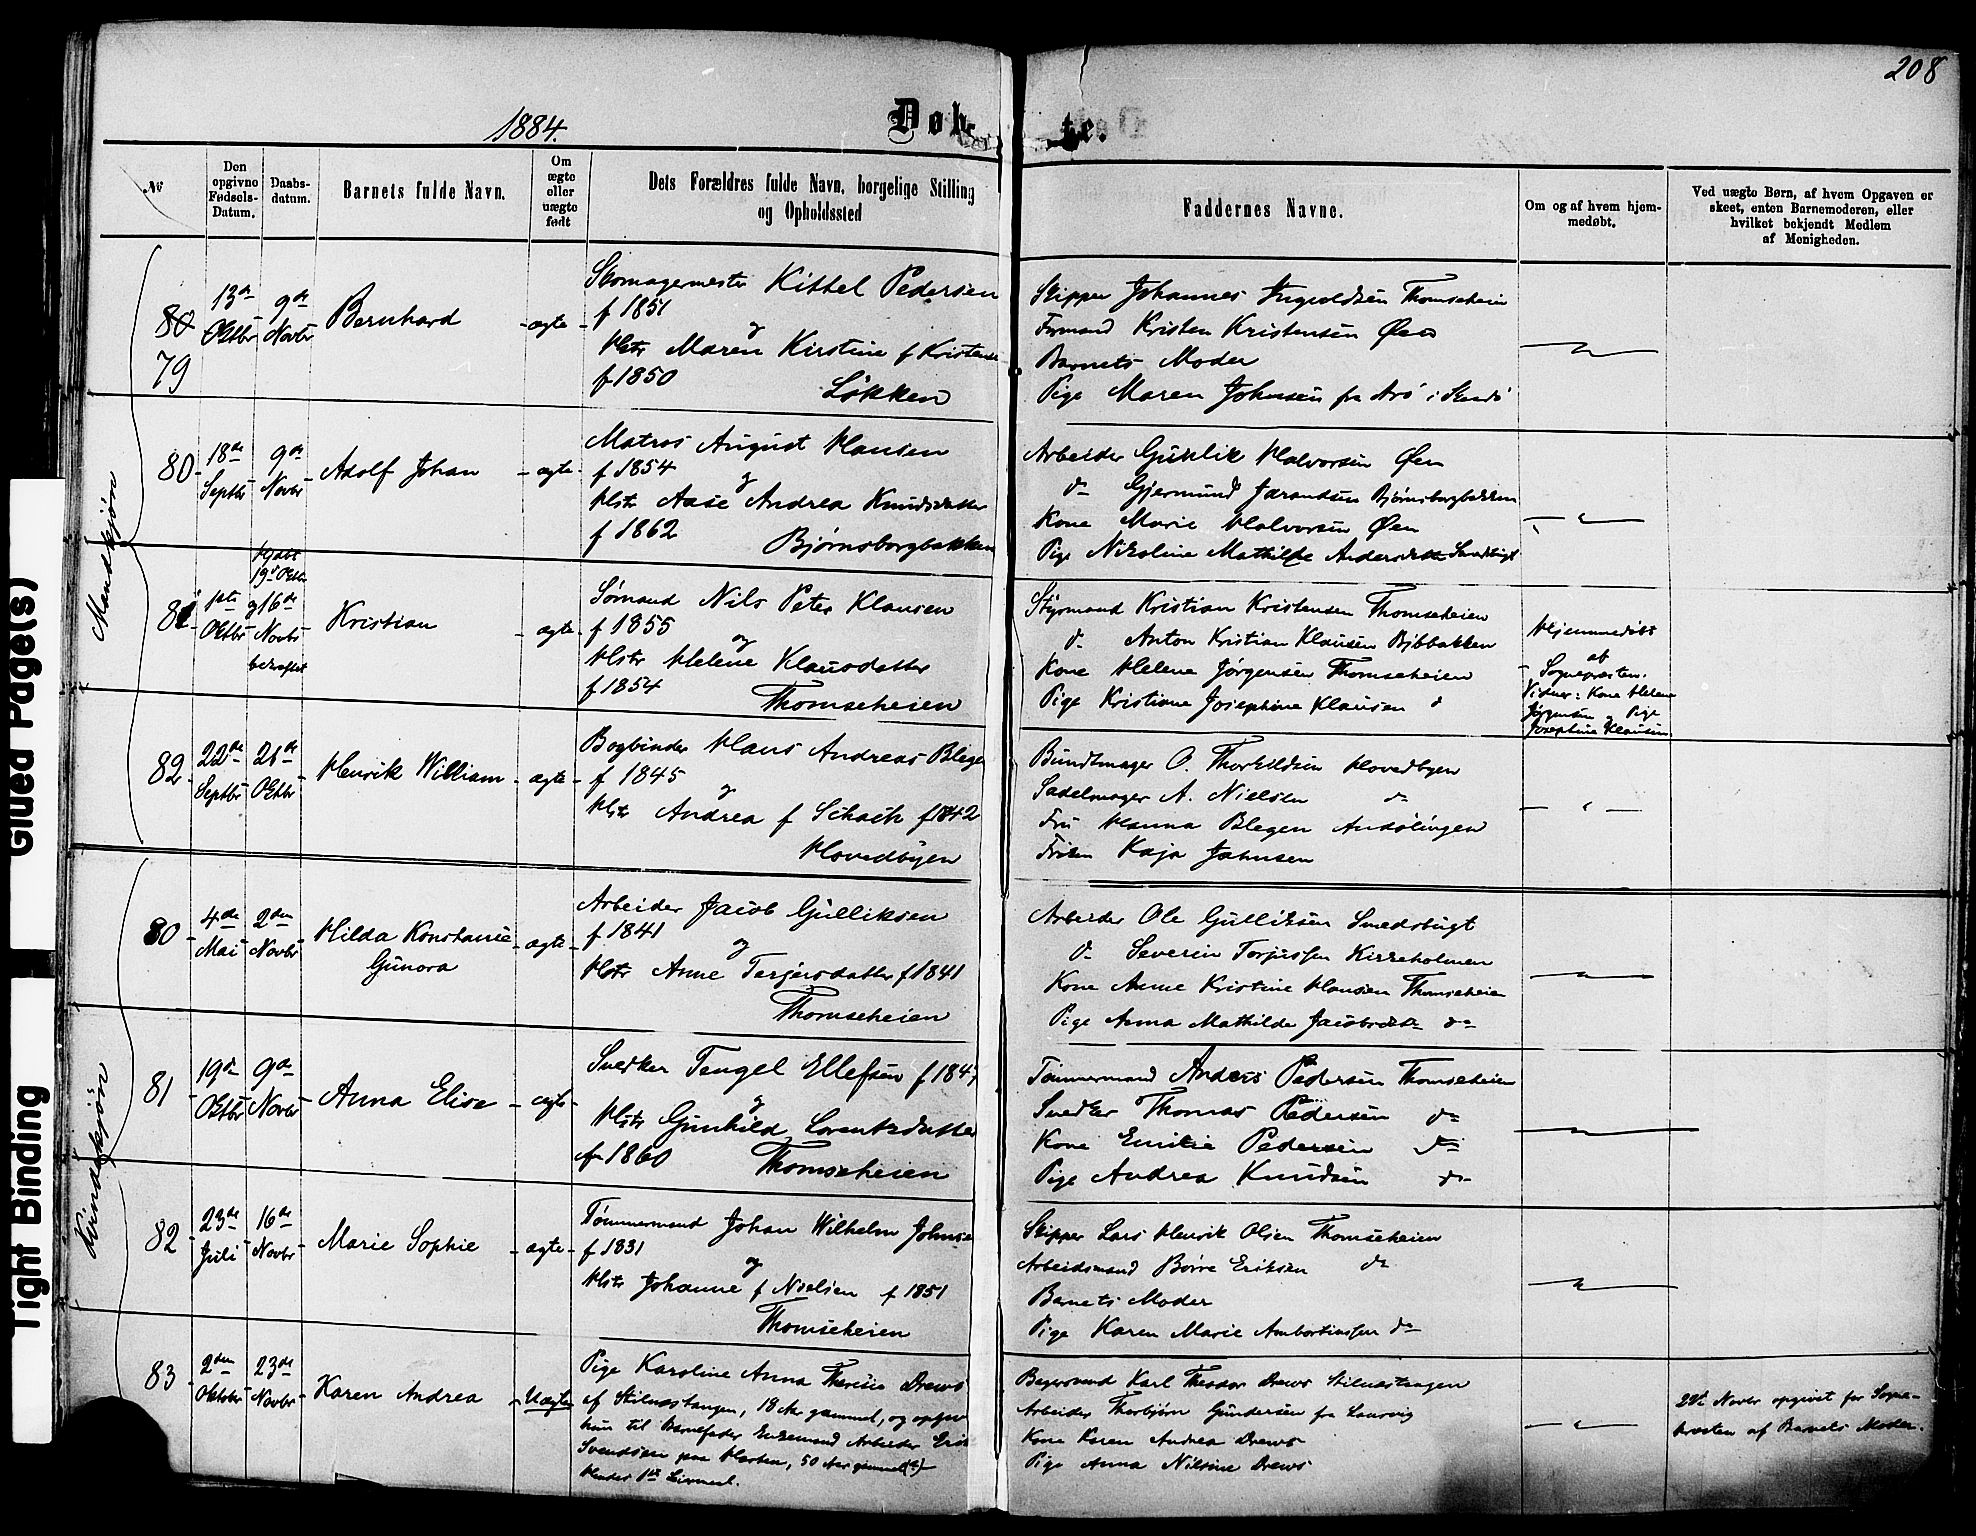 208
1884.
Døbte.
No
Den opgivne Fødsels-Datum.
Daabs-datum.
Barnets fulde Navn.
Om ægte eller uægte født
Dets Forældres fulde Navn, borgelige Stilling og Opholdssted
Faddernes Navne.
Om og af hvem hjem-medøbt.
Ved uægte Børn, af hvem Opgaven er skeet, enten Barnemoderen, eller hvilket bekjendt Medlem af Menigheden.
Mandkjøn
80
79
13de Oktbr
9de Novbr
Bernhard
ægte
Skomagermester Kittel Pedersen
f 1851
og
Hstr Maren Kirstine f Kristensen
f 1850
Løkken
Skipper Johannes Ingvoldsen Thomseheien
Formand Kristen Kristensen Øen
Barnets Moder
Pige Maren Johnsen fra Arø i
80
18de Septbr
9de Novbr
Adolf Johan
ægte
Matros August Hansen
f 1854
og
Hstr Aase Andrea Knudsdatter
f 1862
Bjørnsborgbakken
Arbeider Gunlik Halvorsen Øen
do Gjermund Jarandsen Bjørnsborgbakken
Kone Marie Halvorsen Øen
Pige Nikoline Mathilde Andersdatter
81
1ste Oktbr
Hjdøbt 19de Oktbr
og 16de Novbr bekræftet
Kristian
ægte
Sømand Nils Peter Klausen
f 1855
og
Hstr Helene Klausdatter
f 1854
Thomseheien
Styrmand Kristian Kristensen Thomseheien
do Anton Kristian Klausen
Kone Helene Jørgensen Thomseheien
Pige Kristiane Josephine Klausen do
Hjemmedøbt
af
Sognepresten.
Vidner: Kone Helene
Jørgensen og Pige
Josephine Klausen
82
22de Septbr
26de Oktbr
Henrik William
ægte
Bogbinder Hans Andreas Blegen
f 1845
og
Hstr Andrea f Schach f 1842
Hovedbyen
Bundtmager O. Thorkildsen Hovedbyen
Sadelmager A. Nielsen do
Fru Hanna Blegen
Frøken Kaja Jahnsen
Kvindekjøn
80
4de Mai
2den Novbr
Hilda Konstanse
Gunora
ægte
Arbeider Jacob Gulliksen
f 1841
og
Hstr Anne Terjersdatter f 1841
Thomseheien
Arbeider Ole Gulliksen Smedsbugt
do Severin Torjussen Kirkeholmen
Kone Anne Kristine Hansen Thomseheien
Pige Anna Mathilde Jacobsdtr do
81
19de Oktbr
9de Novbr
Anna Elise
ægte
Snedker Tengel Ellefsen f 184
og
Hstr Gunhild Lorentzdatter
f 1860
Thomseheien
Tømmermand Anders Pedersen Thomseheien
Snedker Thomas Pedersen do
Kone Emilie Pedersen do
Pige Andrea Knudsen do
82
23de Juli
16de Novbr
Marie Sophie
ægte
Tømmermand Johan Wilhelm Johnse
f 1831
og
Hstr Johanne f Nielsen f 1851
Thomseheien
Skipper Lars Henrik Olsen Thomseheien
Arbeidsmand Børre Eriksen do
Barnets Moder
Pige Karen Marie Ambortinussen do
83
2den Oktober
23de Novbr
Karen Andrea
Uægte
Pige Karoline Anna Therese Drews
af Stilnæstangen, 18 Aar gammel, og opgiver
hun til Barnefader Enkemand Arbeider Erik
Svendsen paa Hesten, 50 Aar gammel(?)
Hendes 1ste Leiermaal.
Bøgersvend Karl Theodor Drews Stilnæstangen
Arbeider Thorbjørn Gundersen fra Laurvig
Kone Karen Andrea Drews
Pige Anna Nilsine Drews
22de Novbr opgivet for Sogne-
presten af Barnets Moder.
Glued Page(s)
Tight Binding